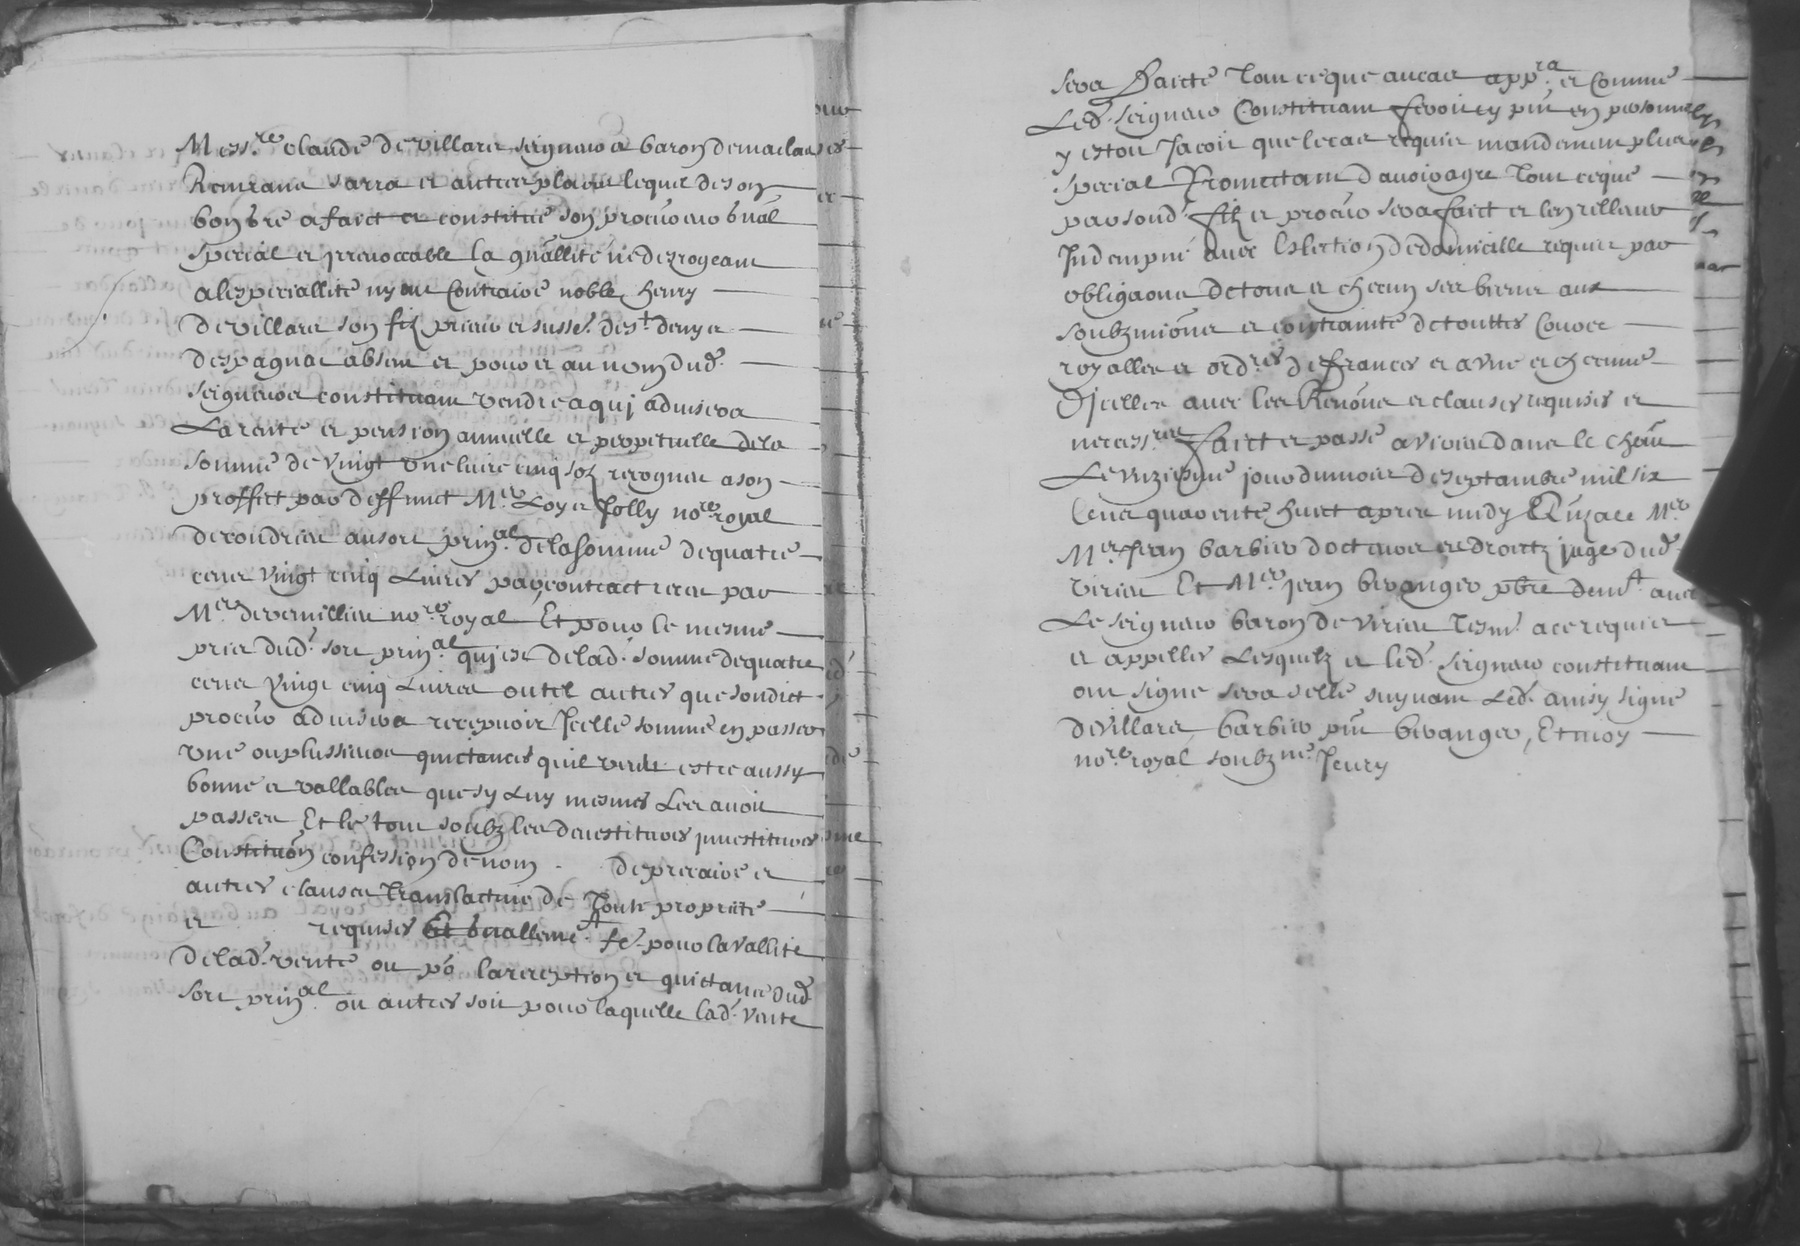 Mess.re claude de villars seigneur et baron de maclas
Romzane sarra et autres places lequel de son
bon gre a faict et constitue son procuro gnal
special et irrevoccable la quallite ne desrogeant
a lespeciallite ny au contraire noble henry
de villars son filz prieur et de st denys
despagnac absent et pour et au nom dud.
seigneur constituant vendre a qui advisera
La rente et pension annuelle et perpetuelle de la
somme de vingt une livre cinq solz recognue a son
proffict par deffunct M.e Loys Jolly no.re royal
de condrieu au sort prin.al de la somme de quatre
cens vingt cinq Livres par contract receu par
M.e devernillieu no.re royal Et pour le mesme
pris dud. sort prin.al qui est de lad. somme de quatre
cens vingt cinq Livres ou tel autres que sondict
procuro advisera recepvoir Icelle somme en passer
une ou plussieurs quictances quil veult estre aussy
bonne et vallables que sy Luy mesmes Les avoit
passees Et le tout soubz les devestitures investitures
Constituon confession de nom . de precaire et
autres clauses translactive de Toute propriete
et requises Et gnallemet fe. pour la vallite
de lad. vente ou po. la reception et quictance dud
sort prin.al ou autres soit pour laquelle lad. vente
sera Faicte Tout ce que au cas app.ra et Comme
Led. seigneur Constituant feroit sy pnt en personne
y estoit Jacoit que le cas requit mandement plus
special Promectant d avoir agre Tout ce que
par sond. filz et procuro sera faict et len rellever
Indempne avec Eslection de domicille requise par
obligaons de tous et chacun ses biens aux
soubzmions et contrainte de touttes Cours
royalles et ord.res de france et a une et chacune
Dicelles avec les Renons et clauses requises et
necess.res faict et passe a virieu dans le chau
Le unziesme jour du mois de septembre mil six
Cens quarente huict apres midy M.e
M.e Jean barbier docteur es droictz juge dud.
virieu Et M.e jean beranger pbre dem.t avec
Le seigneur baron de virieu Tesm. a ce requis
et appelles Lesquelz et led. seigneur constituant
ont signe sera selle suyvant Led. ainsy signe
de villars, barbier pnt beranger, Et moy
no.re royal soubz ne. Jeury